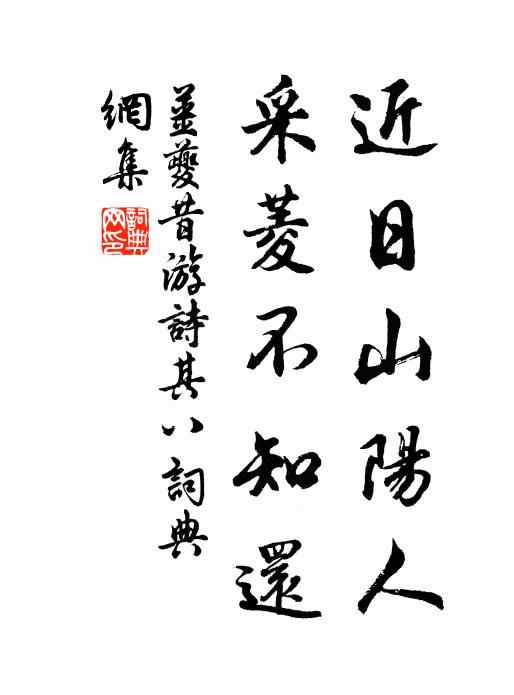 近日山陽人
采菱不知還
姜夔昔游詩其八詞典
網集
詞典网印